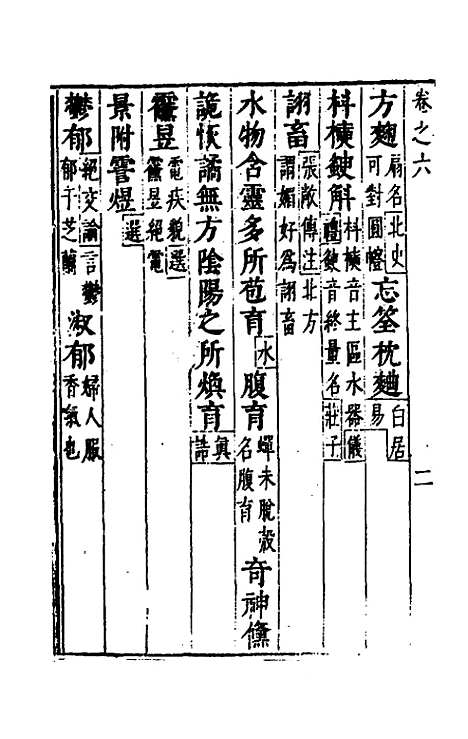 卷之六 二
方麯扇名北史可對圓幨忘筌枕麯白居易
斛音主區水器儀禮音終量名莊子
詡畜張敞傳注北方謂媚好爲詡畜
水物含靈多所苞育水腹育蟬未脫殼名腹育奇神儻
詭恢譎無方陰陽之所煥育真誥
昱電疾貌選昱絕電
景附霅煜選
鬱郁絕交論言鬱郁于芝蘭淑郁婦人服香氣也